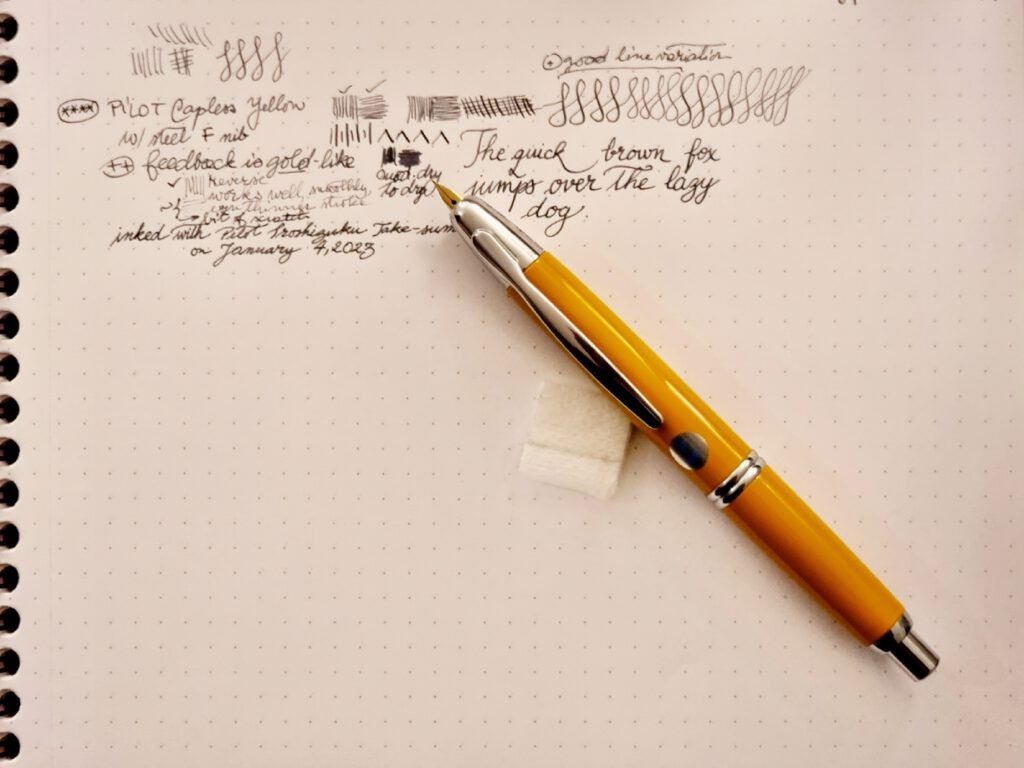 good line variation
PILOT Capless Yellow
w/ steel F nib
feedback is gold-like
reverse
works well, smoothly,
even thinner strokes
bit of
Quad. dry
to dry
inked with Pilot Iroshizuku Take-sum
on January 7, 2023
The quick brown fox
jumps over the lazy
dog.